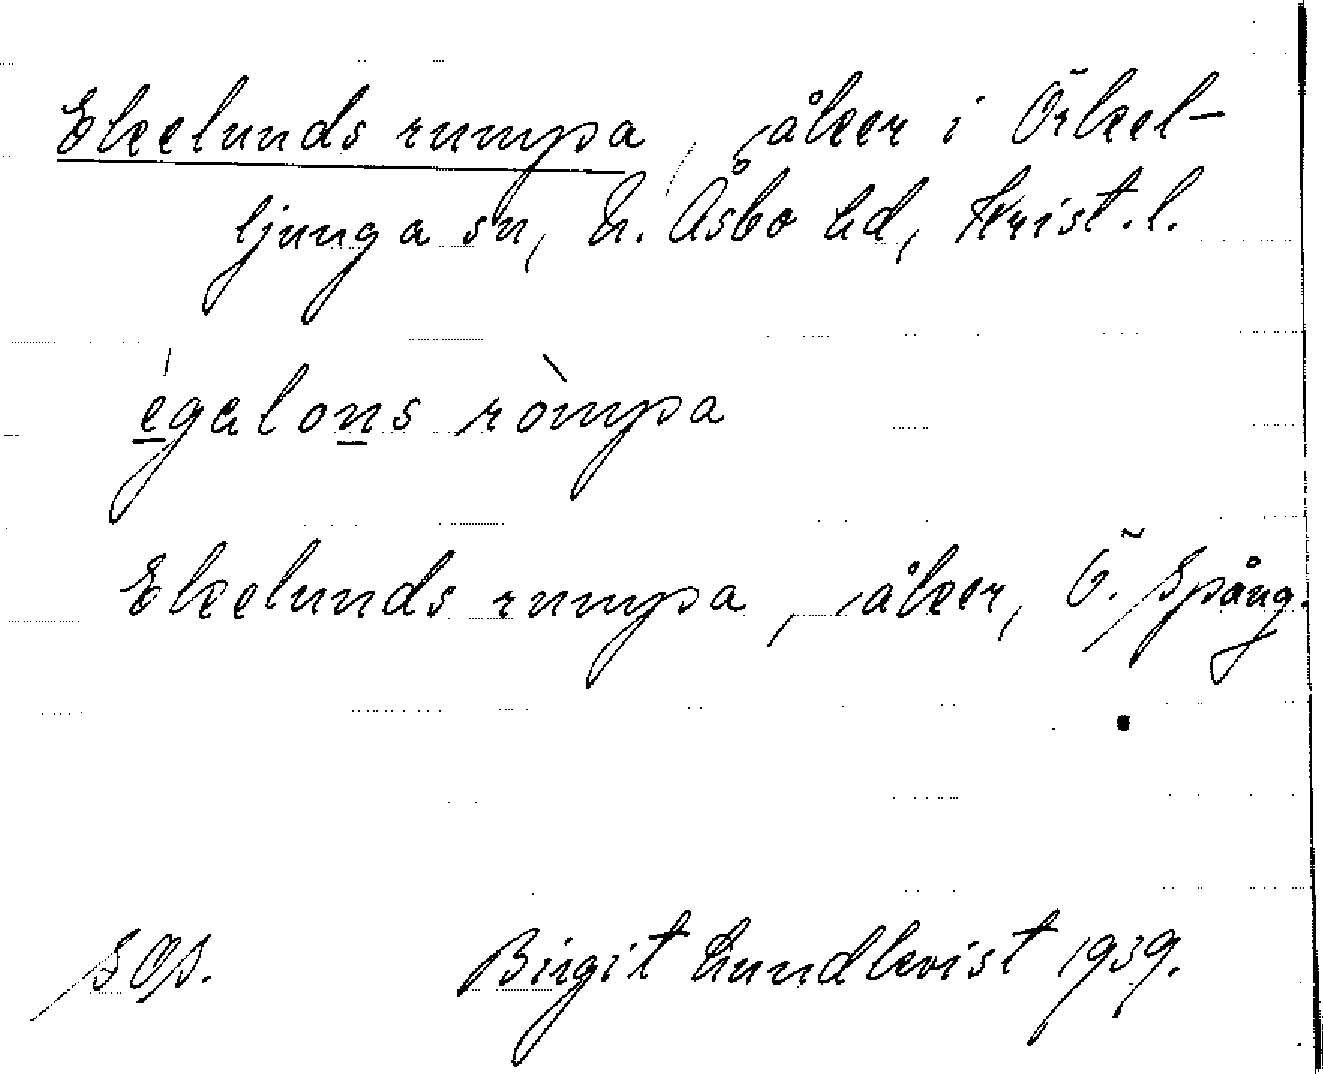 Ekelunds rumpa, åker i Örkel-
ljunga sn, N. Åsbo hd, Krist. l.
égalons ròmpa
Ekelunds rumpa, åker, Ö. Spång.
SOS. Birgit Lundkvist 1939.